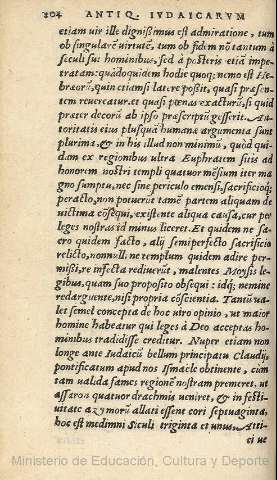 204 ANTIQ. IVDAICARVM
etiam uir ille dignißimus est admiratione, tum
ob singularẽ virtutẽ, tum ob fidem nõ tantum à
seculi sui hominibus, sed à posteris etiã impe-
tratam: quãdoquidem hodie quoq; nemo est He-
bræorũ, quin etiamsi latere poßit, quasi præsen-
tem reuereatur, et quasi pœnas exacturũ, si quid
præter decorũ ab ipso præscriptũ gesserit. Au-
toritatis eius plusquã humanæ argumenta sunt
plurima. & in his illud non minimũ, quòd qui-
dam ex regionibus ultra Euphratem suis ad
honorem nostri templi quatuor mẽsium iter ma
gno sumptu, nec sine periculo emensi, sacrificioq;
peracto, non potuerũt tamẽ partem aliquam de
uictima cõsequi, existente aliqua causa, cur per
leges nostras id minus liceret. Et quidem ne sa-
cro quidem facto, alij semiperfecto sacrificio
relicto, nonnull. ne templum quidem adire per-
mißi, re infecta rediuerũt, malentes Moysis le-
gibus, quàm suo proposito obsequi: idq; nemine
redarguente, nisi propria cõscientia. Tantũ ua-
let semel concepta de hoc uiro opinio, ut maior
homine habeatur qui leges à Deo acceptas ho-
minibus tradidisse creditur. Nuper etiam non
longe ante Iudaicũ bellum principatu Claudij,
pontificatum apud nos Ismaele obtinente, cùm
tam ualida fames regionẽ nostram premeret, ut
assaron quatuor drachmis ueniret, & in festi-
uitate azymorũ allati essent cori septuaginta,
hoc est medimni Siculi triginta et unus Atti-
ci ue
Ministerio de Educación, Cultura y Deporte